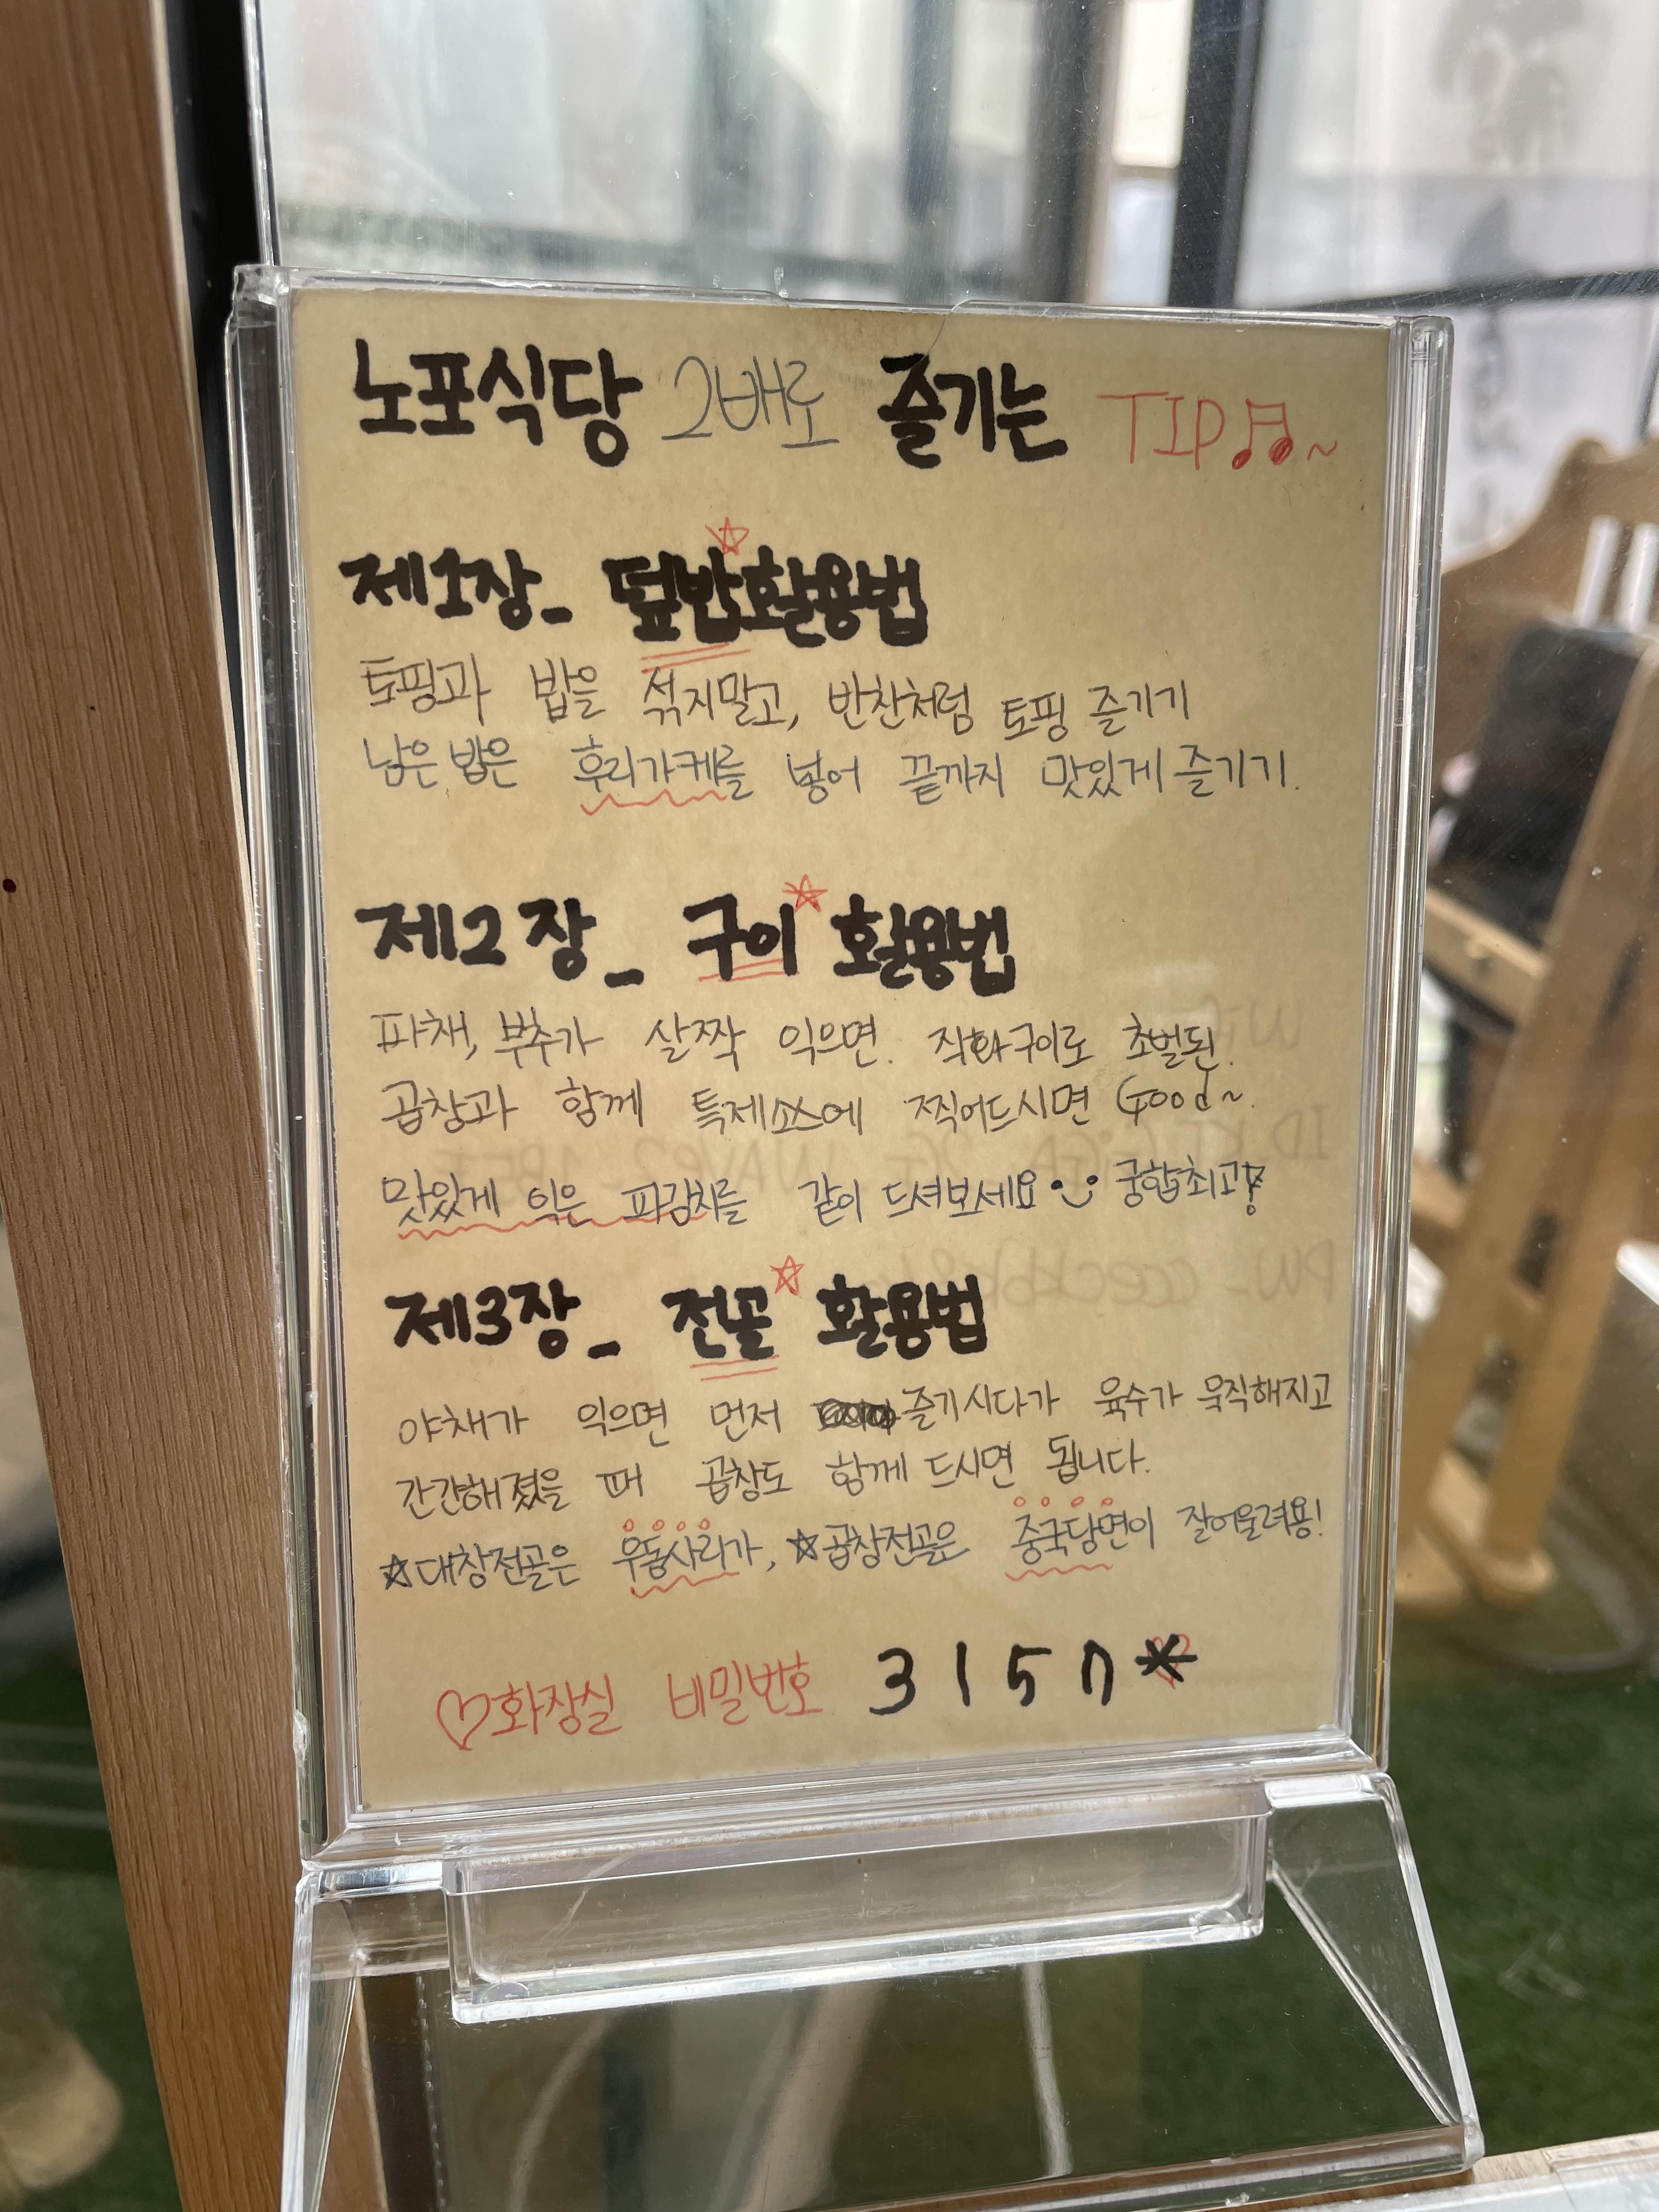 노포식당 2배로 즐기는 TIP♬~
제1장_ 덮밥☆활용법
토핑과 밥을 섞지말고, 반찬처럼 토핑 즐기기
남은 밥은 후리가케를 넣어 끝까지 맛있게 즐기기.
제2장_ 구이☆ 활용법
파채, 부추가 살짝 익으면. 직화구이로 초벌된.
곱창과 함께 특제소스에 찍어드시면 Good~.
맛있게 익은 파김치를 같이 드셔보세요 궁합최고!
제3장_ 전골☆ 활용법
야채가 익으면 먼저 즐기시다가 육수가 묵직해지고
간간해졌을 때 곱창도 함께 드시면 됩니다.
☆대창전골은 우동사리가, ☆곱창전골은 중국당면이 잘어울려용!
♡화장실 비밀번호 3157*